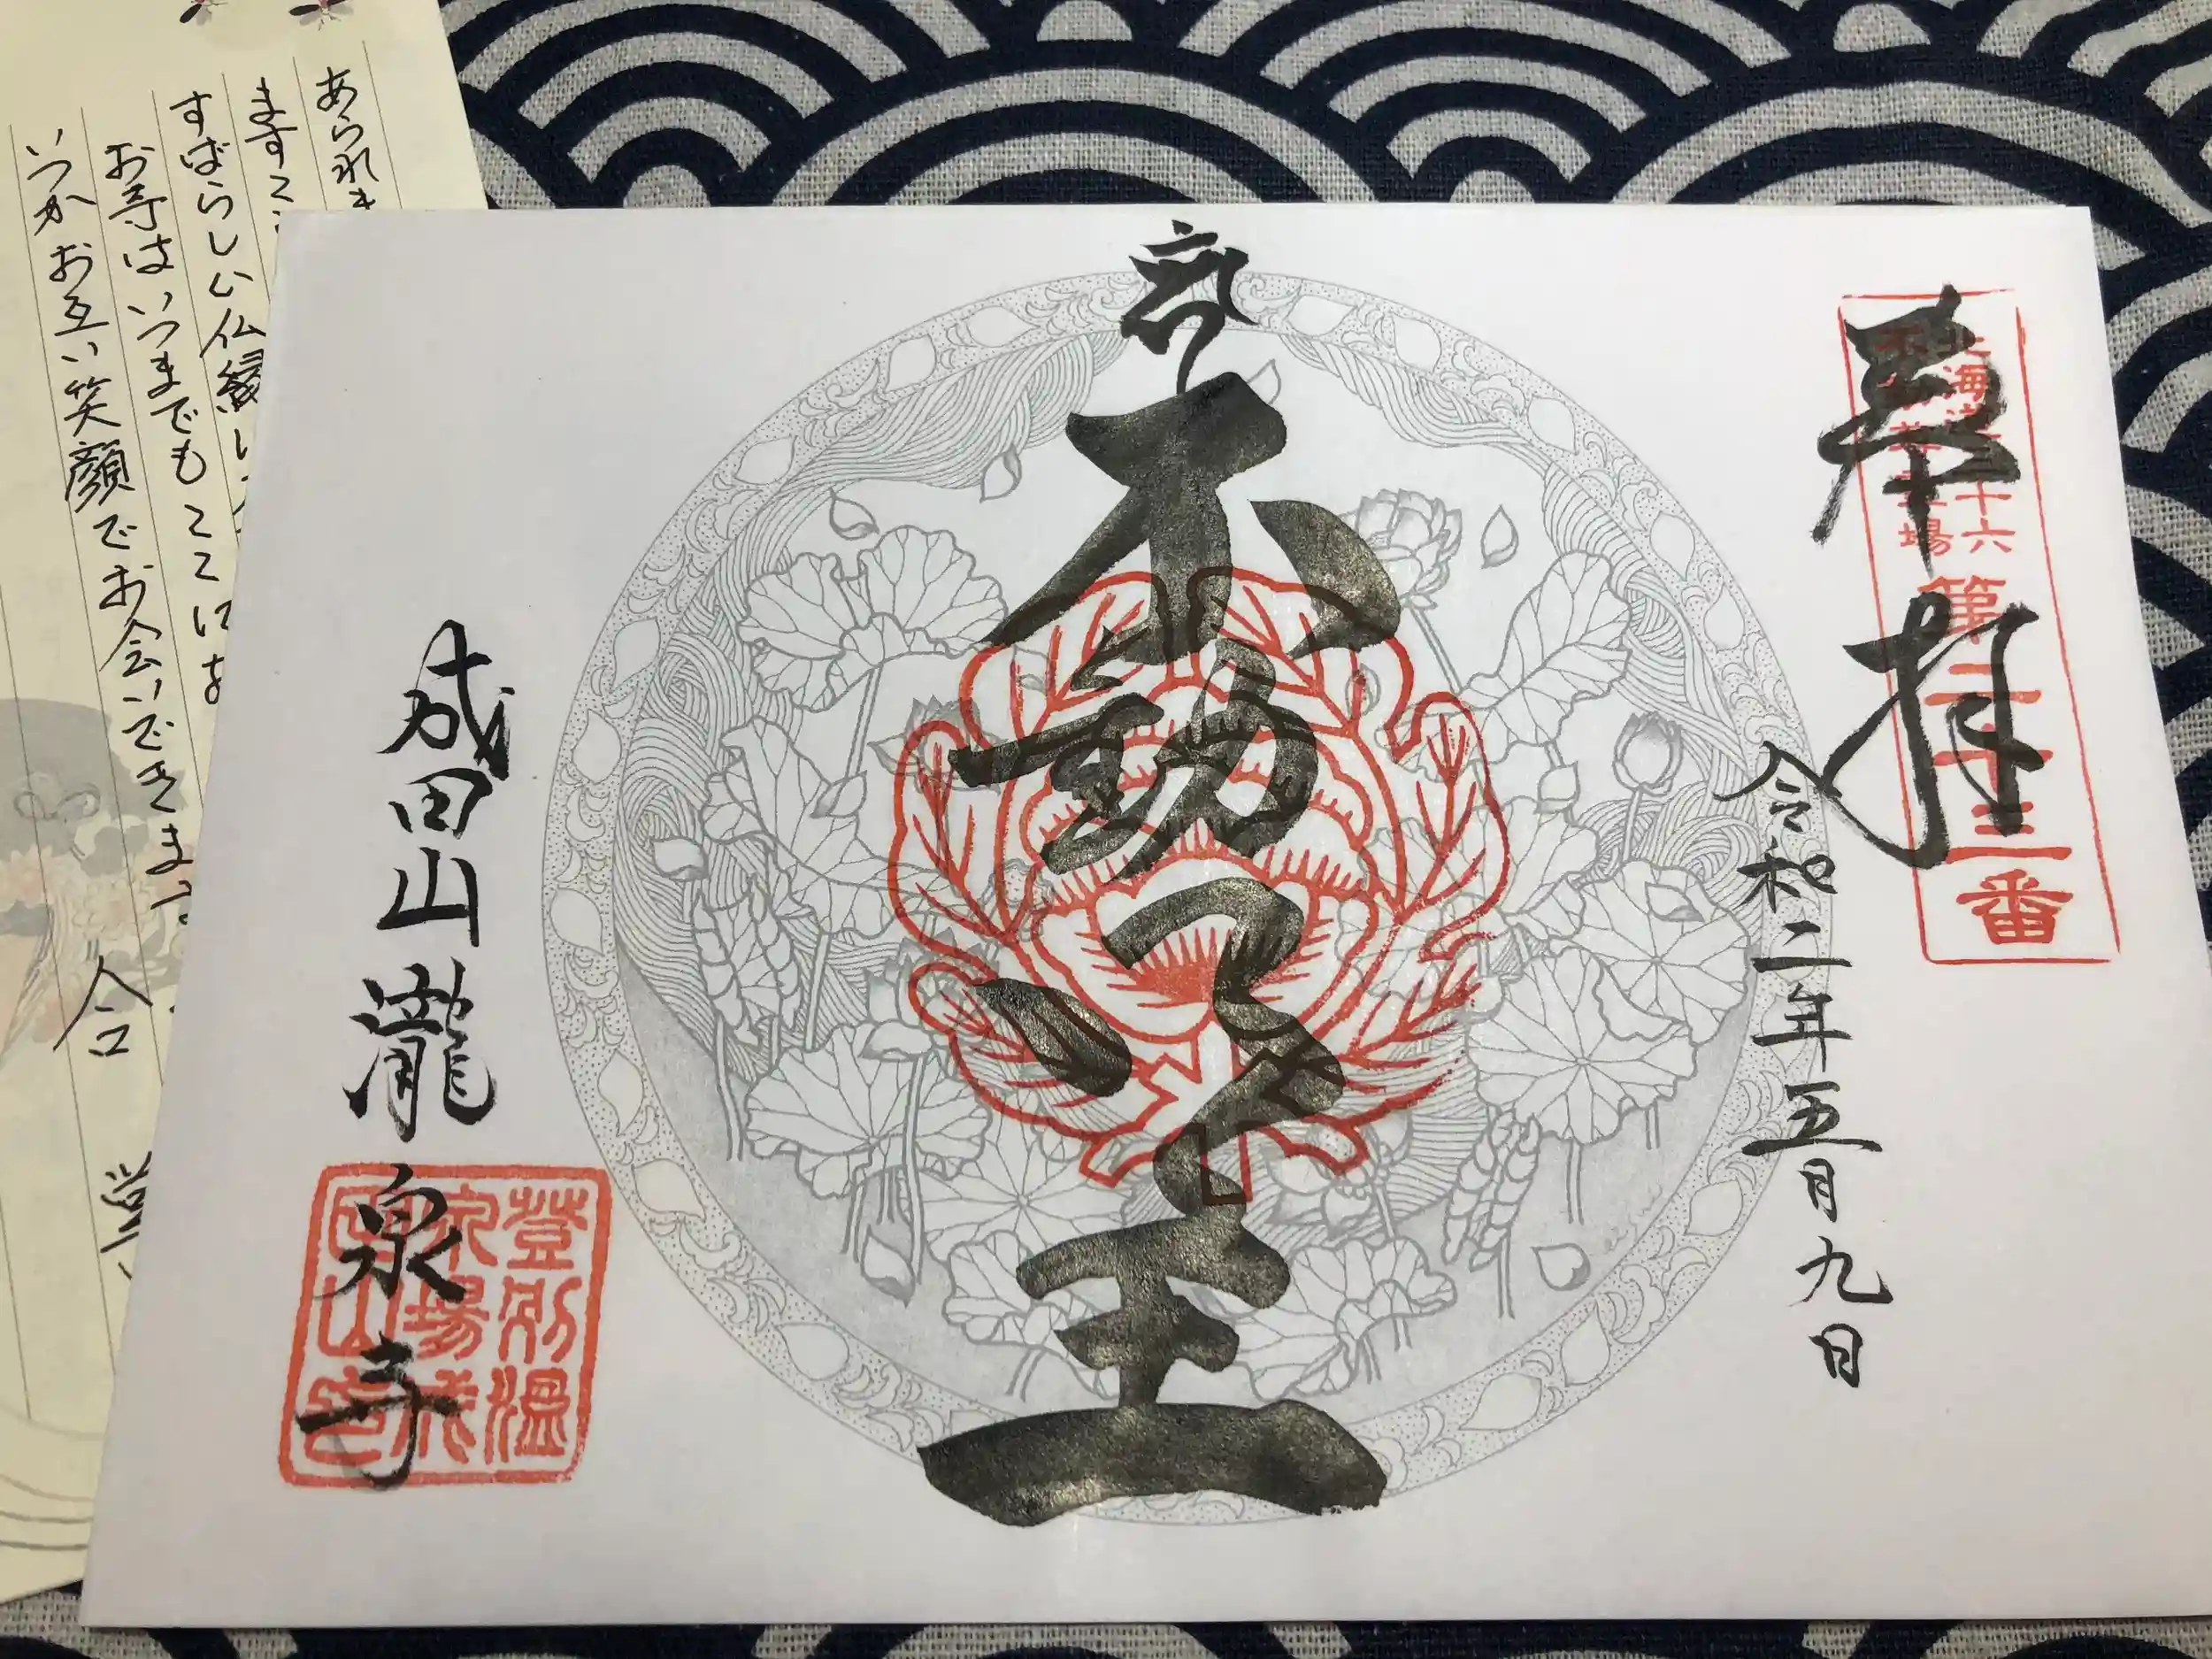 奉拝
北海道三十六
不動尊霊場
第二十三番
令和二年五月九日
不動明王
成田山瀧泉寺
登別温
泉場成
田山
あられま
ます
すばらしい仏縁に
お寺はいつまでもここにあ
いつかお互い笑顔でお会いできます
合